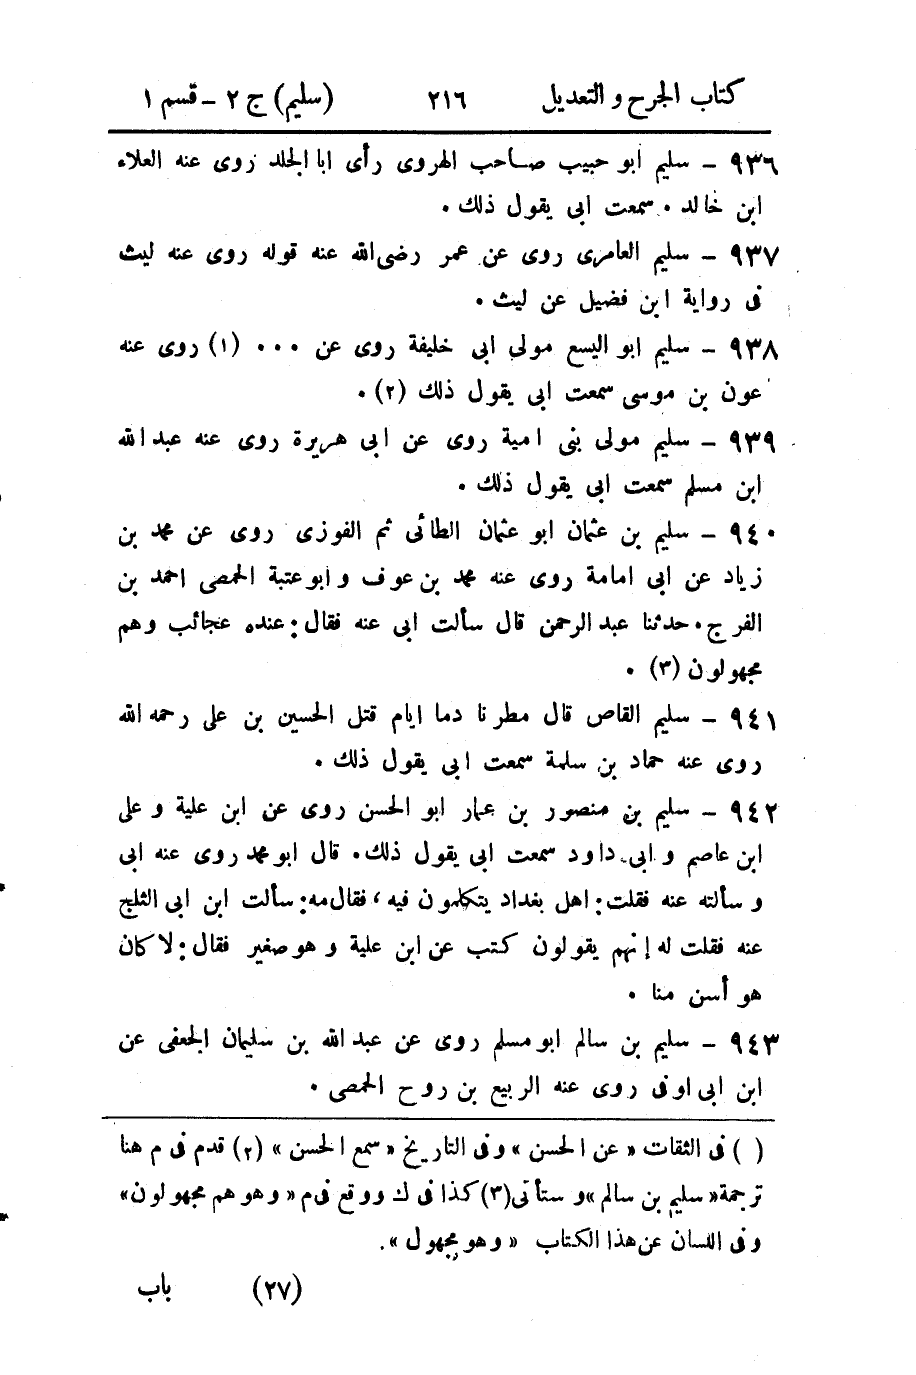 كتاب الجرح و التعديل ٢١٦ (سليم) ج ٢ - قسم ١
٩٣٦ - سليم ابو حبيب صاحب الهروى رأى ابا الجلد روى عنه العلاء
ابن خالد . سمعت ابى يقول ذلك .
٩٣٧ - سليم العامرى روى عن عمر رضى الله عنه قوله روى عنه ليث
فى رواية ابن فضيل عن ليث .
٩٣٨ - سليم ابو اليسع مولى ابى خليفة روى عن ... (١) روى عنه
عون بن موسى سمعت ابى يقول ذلك (٢) .
٩٣٩ - سليم مولى بنى امية روى عن ابى هريرة روى عنه عبد الله
ابن مسلم سمعت ابى يقول ذلك .
٩٤٠ - سليم بن عثمان ابو عثمان الطائى ثم الفوزى روى عن محمد بن
زياد عن ابى امامة روى عنه محمد بن عوف و ابو عتبة الحمصى احمد بن
الفرج . حدثنا عبد الرحمن قال سألت ابى عنه فقال : عنده عجائب وهم
مجهولون (٣) .
٩٤١ - سليم القاص قال مطرنا دما ايام قتل الحسين بن على رحمه الله
روى عنه حماد بن سلمة سمعت ابى يقول ذلك .
٩٤٢ - سليم بن منصور بن عمار ابو الحسن روى عن ابن علية و على
ابن عاصم و ابى داود سمعت ابى يقول ذلك . قال ابو محمد روى عنه ابى
و سألته عنه فقلت : اهل بغداد يتكلمون فيه ، فقال مه : سألت ابن ابى الثلج
عنه فقلت له إنهم يقولون كتب عن ابن علية و هو صغير فقال : لا كان
هو أسن منا .
٩٤٣ - سليم بن سالم ابو مسلم روى عن عبد الله بن سليمان الجعفى عن
ابن ابى اوفى روى عنه الربيع بن روح الحمصى .
( ) فى الثقات « عن الحسن » وفى التاريخ « سمع الحسن » (٢) قدم فى م هنا
ترجمة « سليم بن سالم » و ستأتى (٣) كذا فى ك ووقع فى م « وهو هم مجهولون »
وفى اللسان عن هذا الكتاب « وهو مجهول » .
(٢٧) باب